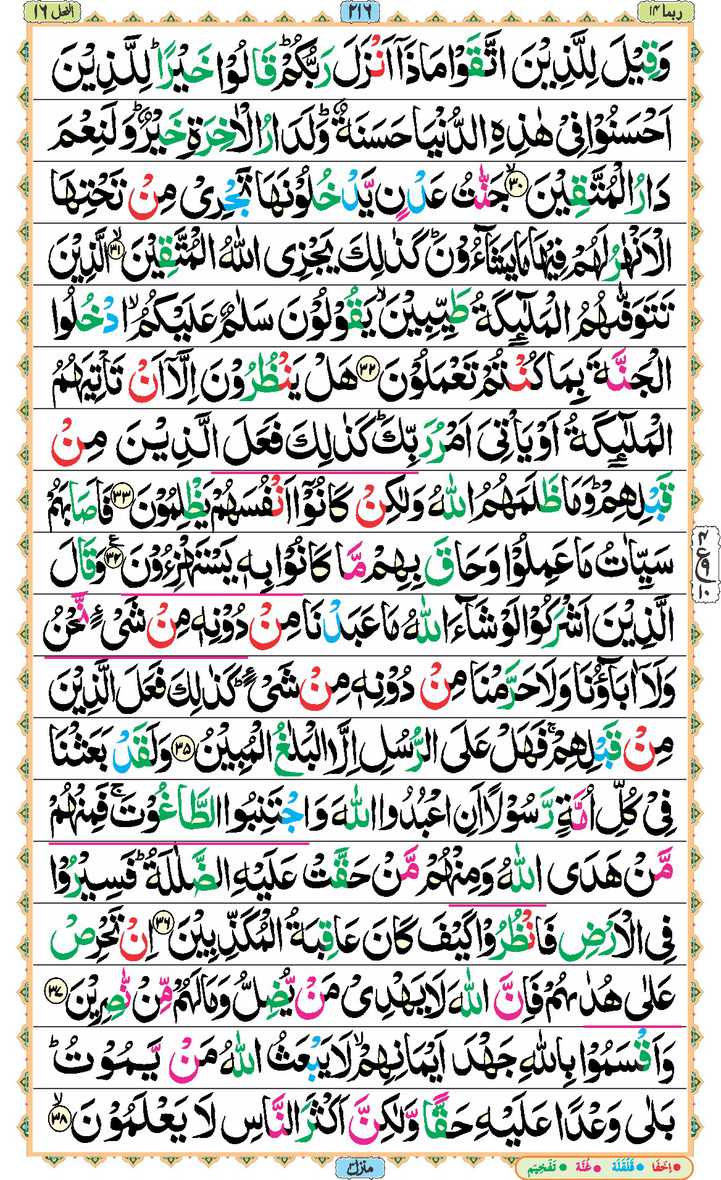 ربما ۱۴
۲۱۶
النحل ۱۶
وَقِيْلَ لِلَّذِيْنَ اتَّقَوْا مَاذَاۤ اَنْزَلَ رَبُّكُمْ ؕ قَالُوْا خَيْرًا ؕ لِلَّذِيْنَ
اَحْسَنُوْا فِىْ هٰذِهِ الدُّنْيَا حَسَنَةٌ ؕ وَلَدَارُ الْاٰخِرَةِ خَيْرٌ ؕ وَلَنِعْمَ
دَارُ الْمُتَّقِيْنَ ۙ‏﴿۳۰﴾ جَنّٰتُ عَدْنٍ يَّدْخُلُوْنَهَا تَجْرِىْ مِنْ تَحْتِهَا
الْاَنْهٰرُ لَهُمْ فِيْهَا مَا يَشَآءُوْنَ ؕ كَذٰلِكَ يَجْزِى اللّٰهُ الْمُتَّقِيْنَ ۙ‏﴿۳۱﴾ الَّذِيْنَ
تَتَوَفّٰٮهُمُ الْمَلٰۤٮِٕكَةُ طَيِّبِيْنَ ۙ يَقُوْلُوْنَ سَلٰمٌ عَلَيْكُمُ ۙ ادْخُلُوا
الْجَنَّةَ بِمَا كُنْتُمْ تَعْمَلُوْنَ‏﴿۳۲﴾ هَلْ يَنْظُرُوْنَ اِلَّاۤ اَنْ تَاْتِيَهُمُ
الْمَلٰۤٮِٕكَةُ اَوْ يَاْتِىَ اَمْرُ رَبِّكَ ؕ كَذٰلِكَ فَعَلَ الَّذِيْنَ مِنْ
قَبْلِهِمْ ؕ وَمَا ظَلَمَهُمُ اللّٰهُ وَلٰكِنْ كَانُوْۤا اَنْفُسَهُمْ يَظْلِمُوْنَ‏﴿۳۳﴾ فَاَصَابَهُمْ
سَيِّاٰتُ مَا عَمِلُوْا وَحَاقَ بِهِمْ مَّا كَانُوْا بِهٖ يَسْتَهْزِءُوْنَ‏﴿۳۴﴾ وَقَالَ
الَّذِيْنَ اَشْرَكُوْا لَوْ شَآءَ اللّٰهُ مَا عَبَدْنَا مِنْ دُوْنِهٖ مِنْ شَىْءٍ نَّحْنُ
وَلَاۤ اٰبَآؤُنَا وَلَا حَرَّمْنَا مِنْ دُوْنِهٖ مِنْ شَىْءٍ ؕ كَذٰلِكَ فَعَلَ الَّذِيْنَ
مِنْ قَبْلِهِمْ ۚ فَهَلْ عَلَى الرُّسُلِ اِلَّا الْبَلٰغُ الْمُبِيْنُ‏﴿۳۵﴾ وَلَقَدْ بَعَثْنَا
فِىْ كُلِّ اُمَّةٍ رَّسُوْلًا اَنِ اعْبُدُوا اللّٰهَ وَاجْتَنِبُوا الطَّاغُوْتَ ۚ فَمِنْهُمْ
مَّنْ هَدَى اللّٰهُ وَمِنْهُمْ مَّنْ حَقَّتْ عَلَيْهِ الضَّلٰلَةُ ؕ فَسِيْرُوْا
فِى الْاَرْضِ فَانْظُرُوْا كَيْفَ كَانَ عَاقِبَةُ الْمُكَذِّبِيْنَ‏﴿۳۶﴾ اِنْ تَحْرِصْ
عَلٰى هُدٰٮهُمْ فَاِنَّ اللّٰهَ لَا يَهْدِىْ مَنْ يُّضِلُّ وَمَا لَهُمْ مِّنْ نّٰصِرِيْنَ‏﴿۳۷﴾
وَاَقْسَمُوْا بِاللّٰهِ جَهْدَ اَيْمَانِهِمْ ۙ لَا يَبْعَثُ اللّٰهُ مَنْ يَّمُوْتُ ؕ
بَلٰى وَعْدًا عَلَيْهِ حَقًّا وَّلٰكِنَّ اَكْثَرَ النَّاسِ لَا يَعْلَمُوْنَ ۙ‏﴿۳۸﴾
منزل ۳
اِخفَا قَلْقَلَه غُنَّه تَفْخِيْم